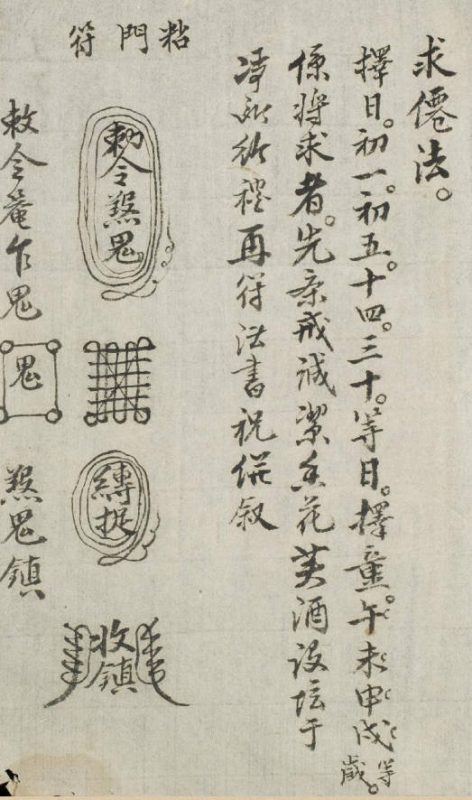 求僊法。
擇日。初一。初五。十四。三十。等日。擇童。午未申戌等歲。
係將求者。先斎戒誠潔香花芙酒設坛于
淨所 禮再符法書祝併叙
粘門符
勅令 鬼
縛捉
收鎮
敕令菴乍鬼
鬼
鬼鎮